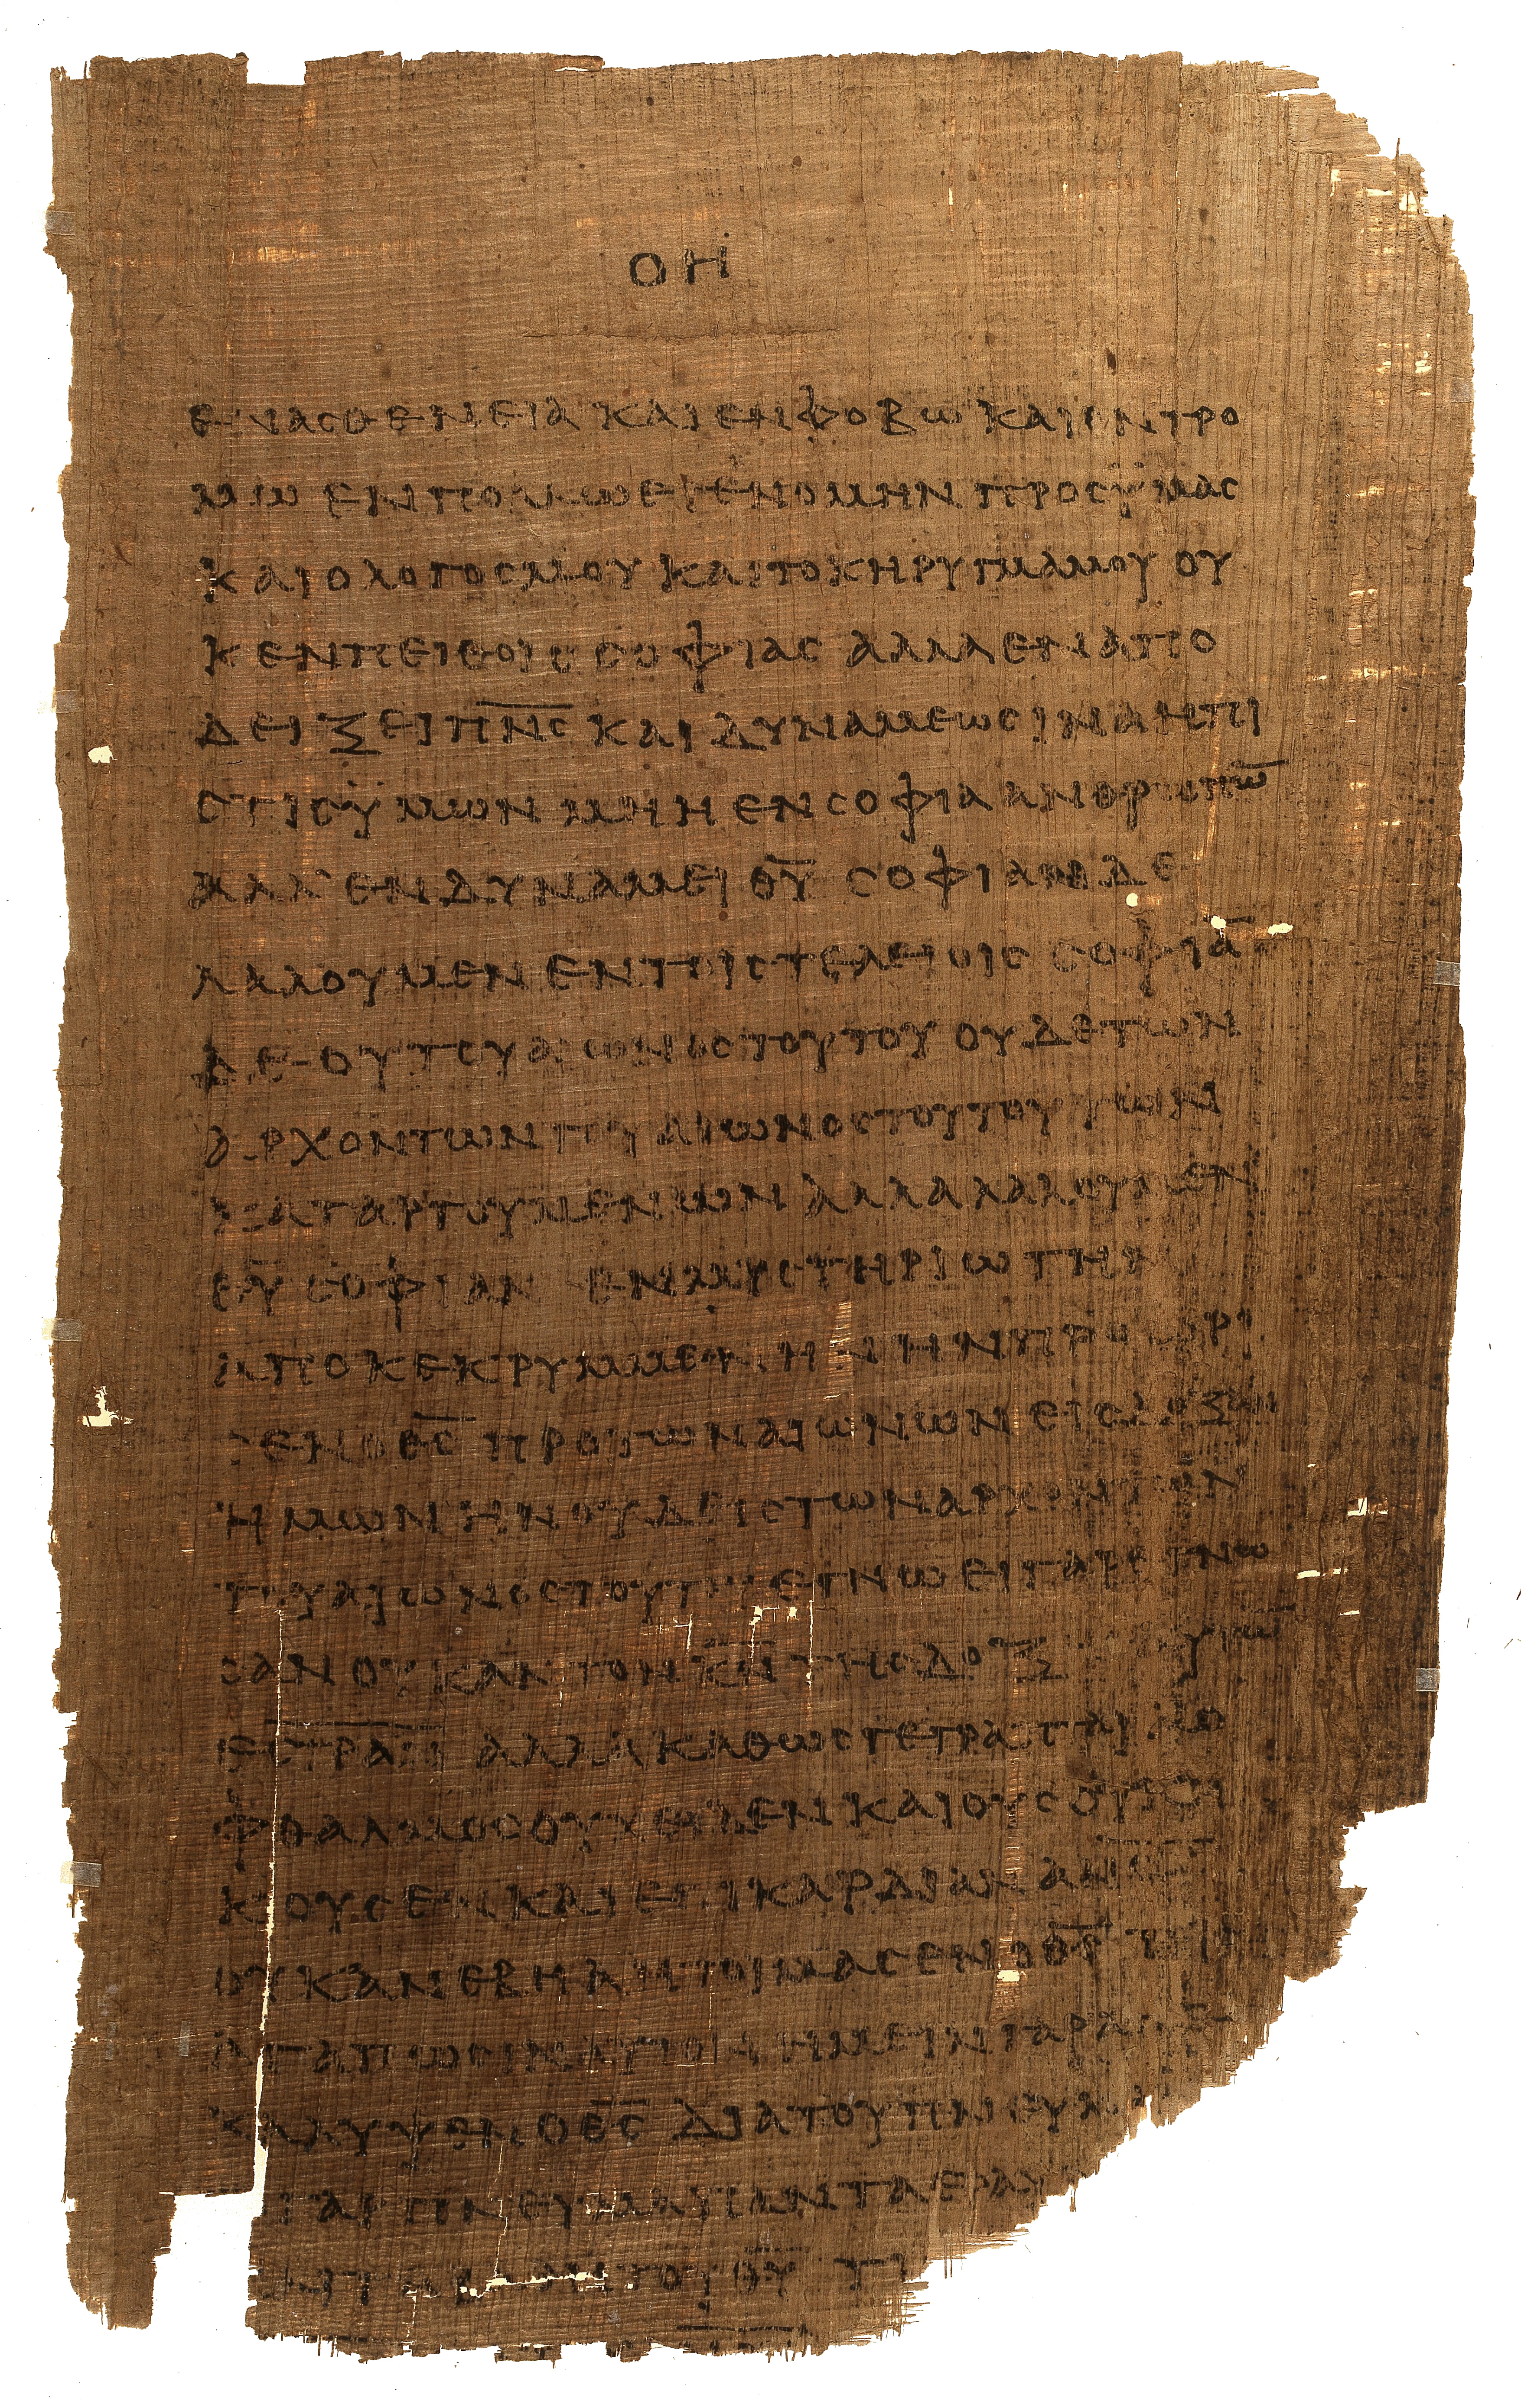 ΟΗ
ΕΝ ΑΣΘΕΝΕΙΑ ΚΑΙ ΕΝ ΦΟΒΩ ΚΑΙ ΕΝ ΤΡΟ
ΜΩ ΕΝ ΠΟΛΛΩ ΕΓΕΝΟΜΗΝ ΠΡΟΣ ΫΜΑΣ
ΚΑΙ Ο ΛΟΓΟΣ ΜΟΥ ΚΑΙ ΤΟ ΚΗΡΥΓΜΑ ΜΟΥ ΟΥ
Κ ΕΝ ΠΕΙΘΟΙΣ ΣΟΦΙΑΣ ΑΛΛΑ ΕΝ ΑΠΟ
ΔΕΙΞΕΙ Π̅Ν̅Σ̅ ΚΑΙ ΔΥΝΑΜΕΩΣ ΙΝΑ Η ΠΙ
ΣΤΙΣ ΫΜΩΝ ΜΗ Η ΕΝ ΣΟΦΙΑ ΑΝΘΡΩΠΩ̅
ΑΛΛ ΕΝ ΔΥΝΑΜΕΙ Θ̅Υ̅ ΣΟΦΙΑΝ ΔΕ
ΛΑΛΟΥΜΕΝ ΕΝ ΤΟΙΣ ΤΕΛΕΙΟΙΣ ΣΟΦΙΑ̅
ΔΕ ΟΥ ΤΟΥ ΑΙΩΝΟΣ ΤΟΥΤΟΥ ΟΥΔΕ ΤΩΝ
ΑΡΧΟΝΤΩΝ ΤΟΥ ΑΙΩΝΟΣ ΤΟΥΤΟΥ ΤΩΝ
ΚΑΤΑΡΓΟΥΜΕΝΩΝ ΑΛΛΑ ΛΑΛΟΥΜΕΝ
Θ̅Υ̅ ΣΟΦΙΑΝ ΕΝ ΜΥΣΤΗΡΙΩ ΤΗΝ
ΑΠΟΚΕΚΡΥΜΜΕΝΗΝ ΗΝ ΠΡΟΩΡΙ
ΣΕΝ Ο Θ̅Σ̅ ΠΡΟ ΤΩΝ ΑΙΩΝΩΝ ΕΙΣ ΔΟΞΑΝ
ΗΜΩΝ ΗΝ ΟΥΔΕΙΣ ΤΩΝ ΑΡΧΟΝΤΩΝ
ΤΟΥ ΑΙΩΝΟΣ ΤΟΥΤΟΥ ΕΓΝΩ ΕΙ ΓΑΡ ΕΓΝΩ
ΣΑΝ ΟΥΚ ΑΝ ΤΟΝ Κ̅Ν̅ ΤΗΣ ΔΟΞ
ΑΛΛΑ ΚΑΘΩΣ ΓΕΓΡΑΠΤΑΙ Α Ο
ΦΘΑΛΜΟΣ ΟΥΧ ΕΙΔΕΝ ΚΑΙ ΟΥΣ ΟΥΚ
ΚΟΥΣΕΝ ΚΑΙ ΕΠΙ ΚΑΡΔΙΑΝ
ΟΥΚ ΑΝΕΒΗ Α ΗΤΟΙΜΑΣΕΝ Ο Θ̅Σ̅ ΤΟΙΣ
ΑΓΑΠΩΣΙΝ ΑΥΤΟΝ ΗΜΕΙΝ ΓΑΡ
ΚΑΛΥΨΕΝ Ο Θ̅Σ̅ ΔΙΑ ΤΟΥ ΠΝΕΥΜ
ΓΑΡ ΠΝΕΥΜΑ ΠΑΝΤΑ ΕΡΑΥ
ΤΟΥ Θ̅Υ̅ ΤΙ